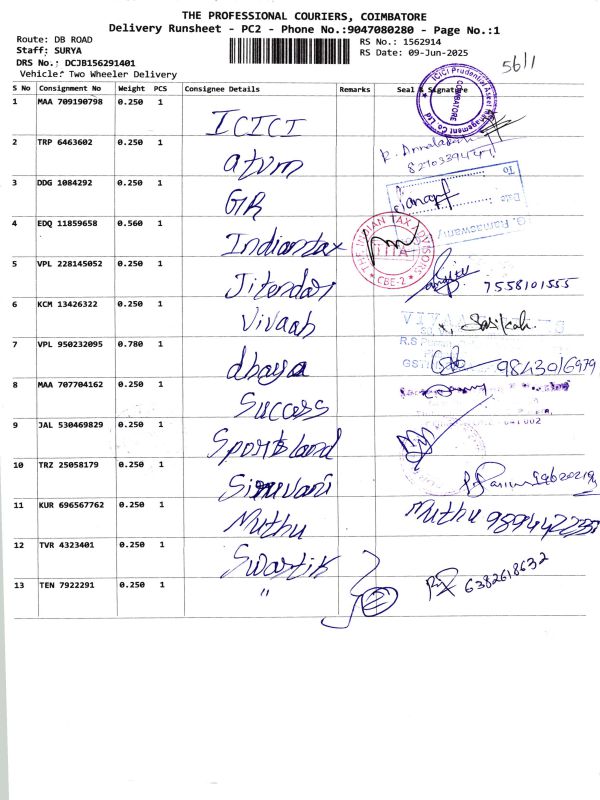 THE PROFESSIONAL COURIERS, COIMBATORE
Delivery Runsheet - PC2 - Phone No.:9047080280 - Page No.:1
Route: DB ROAD
Staff: SURYA
DRS No.: DCJB156291401
Vehicle: Two Wheeler Delivery
RS No.: 1562914
RS Date: 09-Jun-2025
56/1
S No Consignment No Weight PCS Consignee Details Remarks Seal & Signature
1 MAA 709190798 0.250 1 ICICI
ICICI Prudential Asset Management Co Ltd
COIMBATORE
2 TRP 6463602 0.250 1 atvm
3 DDG 1084292 0.250 1 GR
To
Date
G. Ramaswamy
4 EDQ 11859658 0.560 1 Indiantax
THE INDIAN TAX ADVISORS
CBE-2
5 VPL 228145052 0.250 1 Jitendar
7558101555
6 KCM 13426322 0.250 1 Vivaah
Sasikala
7 VPL 950232095 0.780 1 dhaya
R.S
GST
9843016979
8 MAA 707704162 0.250 1 Success
9 JAL 530469829 0.250 1 Sportsland
10 TRZ 25058179 0.250 1 Siruvani
11 KUR 696567762 0.250 1 Muthu
Muthu
12 TVR 4323401 0.250 1 Swastik
6382618632
13 TEN 7922291 0.250 1 "